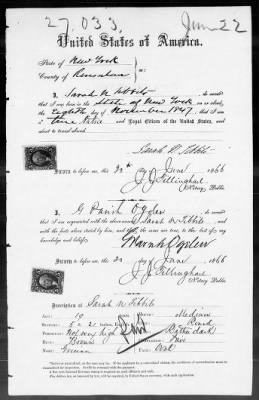 27,033
June 22
United States of America.
State of New York
County of Rensselaer ss:
I, Sarah N Tibbits do swear
that I was born in the State of New York on or about
the Eighth day of November 1847; that I am
a true Native and Loyal Citizen of the United States, and
about to travel abroad.
Sarah N Tibbits
Sworn to before me this 20th day of June 1866
J. J. Tillinghast
Notary Public.
I, G Parish Ogden do swear
that I am acquainted with the above named Sarah N Tibbits and
with the facts above stated by her, and that the same are true, to the best of my
knowledge and belief.
G Parish Ogden
Sworn to before me this 20 day of June 1866
J. J. Tillinghast
Notary Public.
Description of Sarah N Tibbits
Age: 19
Mouth: Medium
Stature: 5 feet 2 1/2 inches
Chin: Round
Forehead: Not very high
Hair: Rather dark
Eyes: Brown
Complexion:
Nose: Grecian
Face: Oval